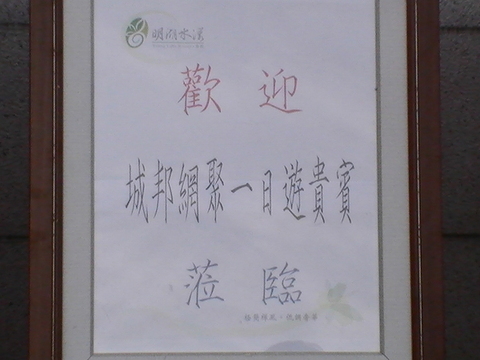 明湖水漾
歡迎
城邦網聚一日遊貴賓
蒞臨